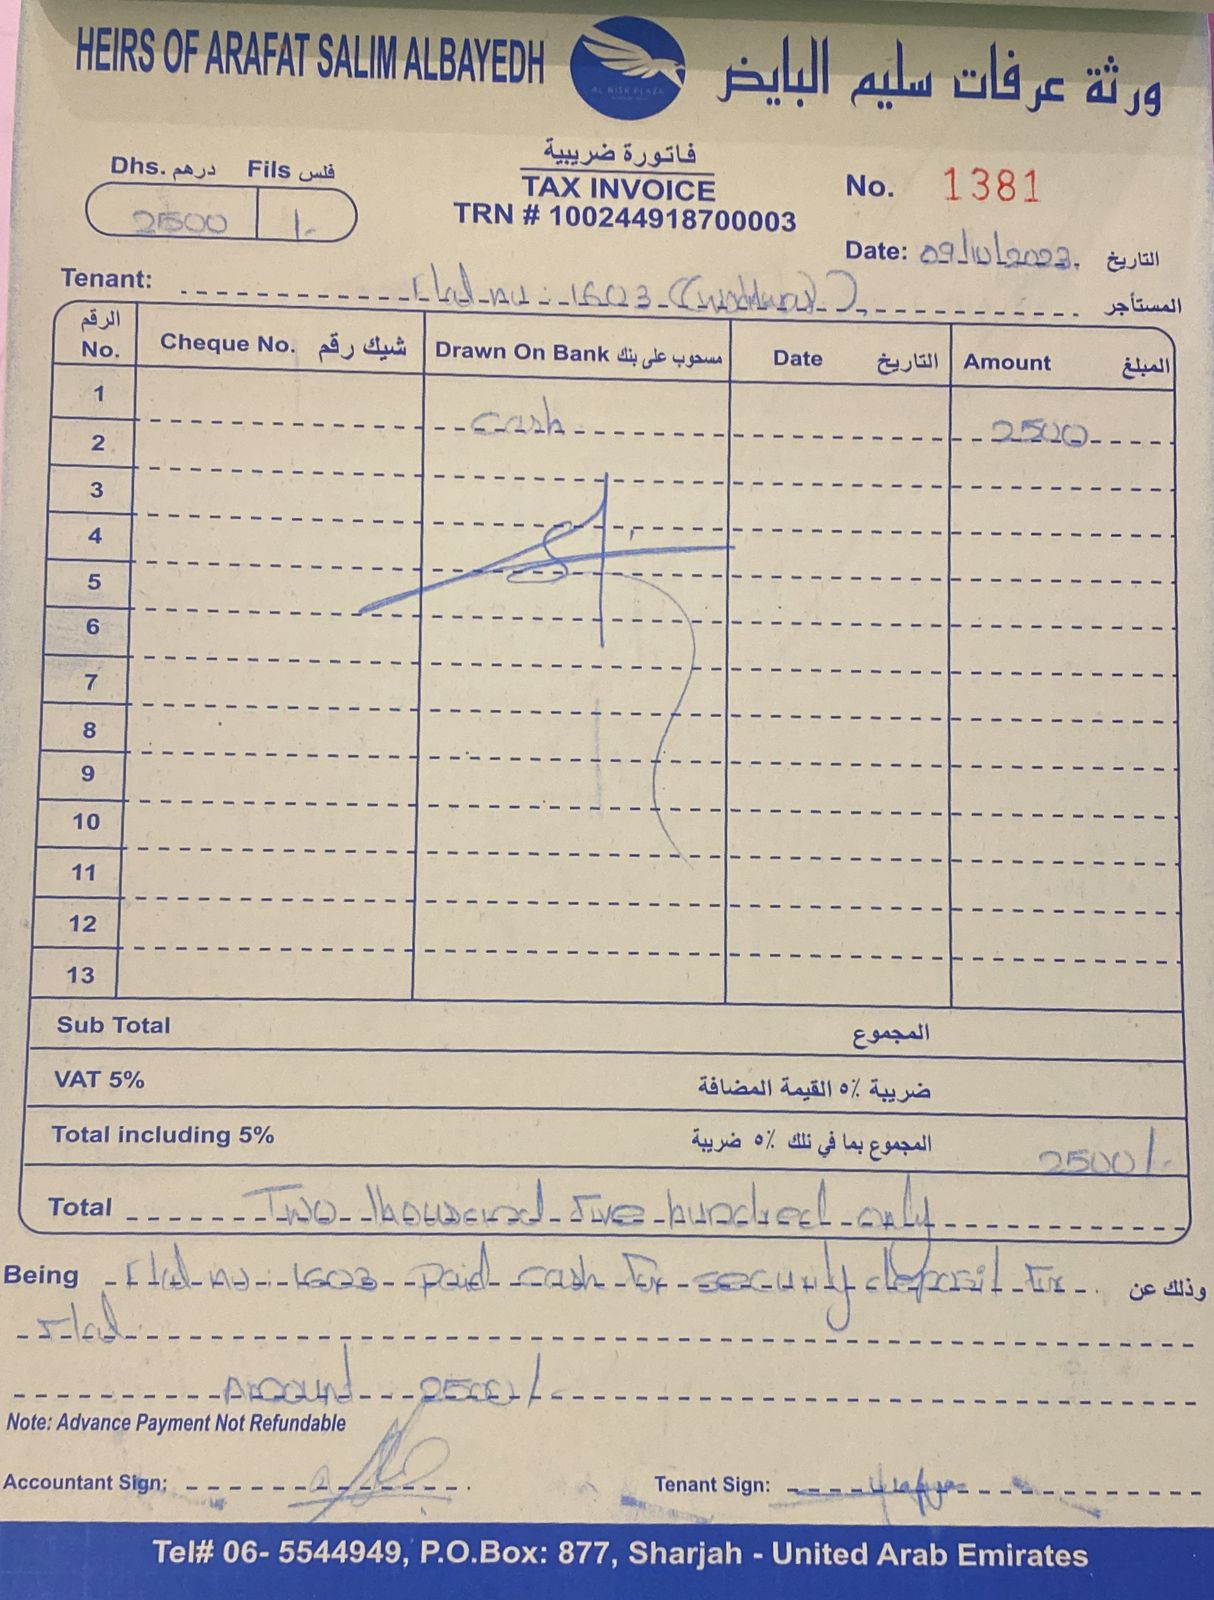 HEIRS OF ARAFAT SALIM ALBAYEDH
AL NISR PLAZA
ورثة عرفات سليم البايض
فاتورة ضريبية
TAX INVOICE
TRN # 100244918700003
Dhs. درهم Fils فلس
2500 /-
No. 1381
Date: 09/10/2023. التاريخ
Tenant: Flat no: 1603 المستأجر
الرقم No. Cheque No. شيك رقم Drawn On Bank مسحوب على بنك Date التاريخ Amount المبلغ
1
2 cash 2500
3
4
5
6
7
8
9
10
11
12
13
Sub Total المجموع
VAT 5% ضريبة ٥٪ القيمة المضافة
Total including 5% المجموع بما في ذلك ٥٪ ضريبة 2500/-
Total Two thousand Five hundred only
Being Flat no: 1603 paid cash for security deposit for وذلك عن
Flat.
Amount 2500/-
Note: Advance Payment Not Refundable
Accountant Sign:
Tenant Sign:
Tel# 06- 5544949, P.O.Box: 877, Sharjah - United Arab Emirates